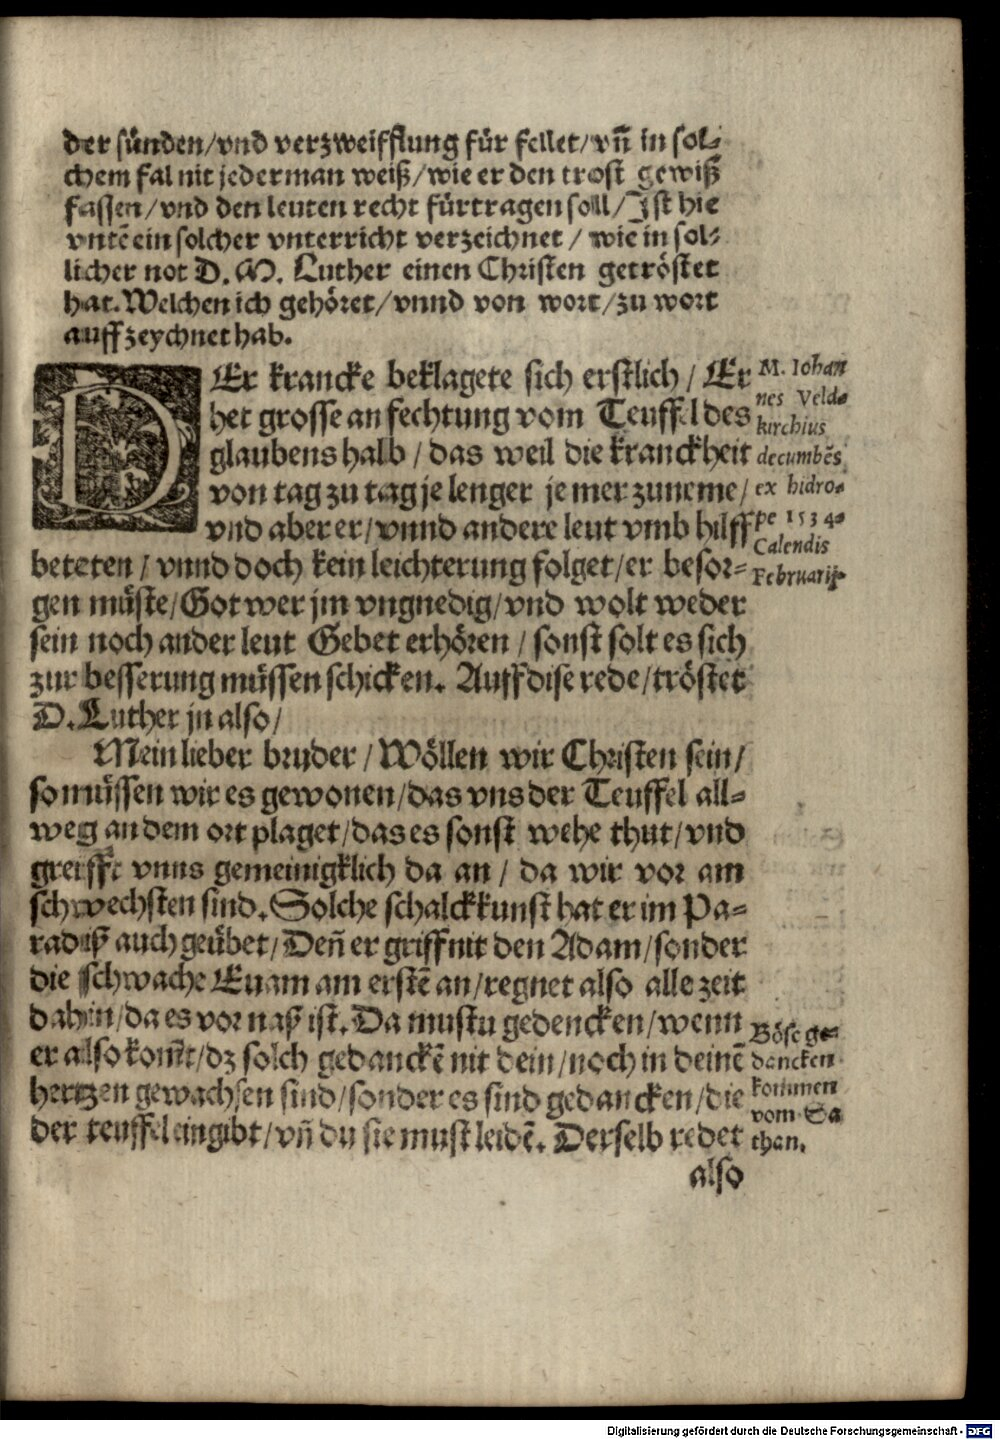 der sünden/vnd verzweifflung für fellet/vñ in sol-
chem fal nit jederman weiß/wie er den trost gewiß
fassen/vnd den leuten recht fürtragen soll/Ist hie
vntē ein solcher vnterricht verzeichnet / wie in sol-
licher not D. M. Luther einen Christen getröstet
hat. Welchen ich gehöret/vnnd von wort/zu wort
auffzeychnet hab.
DEr krancke beklagete sich erstlich / Er
het grosse anfechtung vom Teuffel des
glaubens halb / das weil die kranckheit
von tag zu tag je lenger je mer zuneme/
vnd aber er/vnnd andere leut vmb hilff
beteten / vnnd doch kein leichterung folget/er besor-
gen müste/Got wer jm vngnedig/vnd wolt weder
sein noch ander leut Gebet erhören / sonst solt es sich
zur besserung müssen schicken. Auff dise rede/tröstet
D. Luther jn also/
M. Iohan
nes Veld-
kirchius
decumbēs
ex hidro-
pe 1534.
Calendis
Februarij.
Mein lieber bruder / Wöllen wir Christen sein/
so müssen wir es gewonen/das vns der Teuffel all-
weg an dem ort plaget/das es sonst wehe thut/vnd
greifft vnns gemeinigklich da an / da wir vor am
schwechsten sind. Solche schalckkunst hat er im Pa-
radiß auch geübet/Deñ er griff nit den Adam/sonder
die schwache Euam am erstē an/regnet also alle zeit
dahin/da es vor naß ist. Da mustu gedencken/wenn
er also komt/dz solch gedanckē nit dein/noch in deinē
hertzen gewachsen sind/sonder es sind gedancken/die
der teuffel eingibt/vñ du sie must leidē. Derselb redet
Böse ge-
dancken
kommen
vom Sa
than.
also
Digitalisierung gefördert durch die Deutsche Forschungsgemeinschaft - DFG